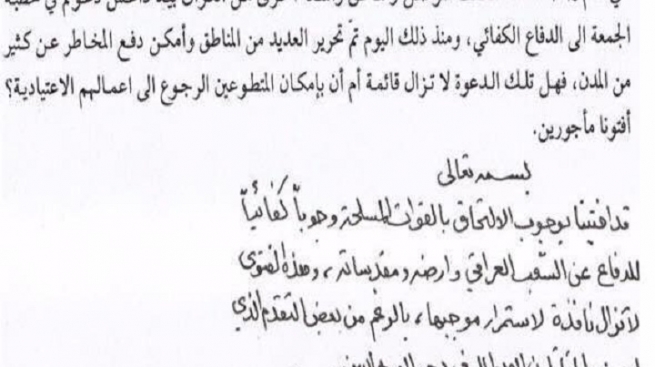 الجمعة الى الدفاع الكفائي، ومنذ ذلك اليوم تمّ تحرير العديد من المناطق وأمكن دفع المخاطر عن كثير
من المدن، فهل تلك الدعوة لا تزال قائمة أم أن بإمكان المتطوعين الرجوع الى اعمالهم الاعتيادية؟
أفتونا مأجورين.
بسمه تعالى
قد افتينا بوجوب الالتحاق بالقوات المسلحة وجوباً كفائياً
للدفاع عن الشعب العراقي وارضه ومقدساته، وهذه الفتوى
لا تزال نافذة لاستمرار موجبها، بالرغم من بعض التقدم الذي